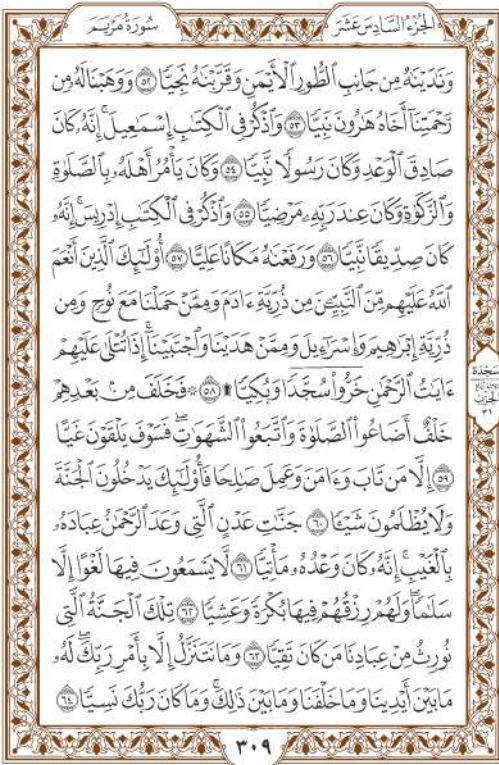 الجُزْءُ السَّادِسَ عَشَرَ
سُورَةُ مَرْيَمَ
وَنَٰدَيْنَٰهُ مِن جَانِبِ ٱلطُّورِ ٱلْأَيْمَنِ وَقَرَّبْنَٰهُ نَجِيًّا ٥٢ وَوَهَبْنَا لَهُۥ مِن
رَّحْمَتِنَآ أَخَاهُ هَٰرُونَ نَبِيًّا ٥٣ وَٱذْكُرْ فِي ٱلْكِتَٰبِ إِسْمَٰعِيلَۚ إِنَّهُۥ كَانَ
صَادِقَ ٱلْوَعْدِ وَكَانَ رَسُولًا نَّبِيًّا ٥٤ وَكَانَ يَأْمُرُ أَهْلَهُۥ بِٱلصَّلَوٰةِ
وَٱلزَّكَوٰةِ وَكَانَ عِندَ رَبِّهِۦ مَرْضِيًّا ٥٥ وَٱذْكُرْ فِي ٱلْكِتَٰبِ إِدْرِيسَۚ إِنَّهُۥ
كَانَ صِدِّيقًا نَّبِيًّا ٥٦ وَرَفَعْنَٰهُ مَكَانًا عَلِيًّا ٥٧ أُوْلَٰٓئِكَ ٱلَّذِينَ أَنْعَمَ
ٱللَّهُ عَلَيْهِم مِّنَ ٱلنَّبِيِّـۧنَ مِن ذُرِّيَّةِ ءَادَمَ وَمِمَّنْ حَمَلْنَا مَعَ نُوحٍ وَمِن
ذُرِّيَّةِ إِبْرَٰهِيمَ وَإِسْرَٰٓءِيلَ وَمِمَّنْ هَدَيْنَا وَٱجْتَبَيْنَآۚ إِذَا تُتْلَىٰ عَلَيْهِمْ
ءَايَٰتُ ٱلرَّحْمَٰنِ خَرُّواْ سُجَّدًا وَبُكِيًّا۩ ٥٨ ۞ فَخَلَفَ مِنۢ بَعْدِهِمْ
خَلْفٌ أَضَاعُواْ ٱلصَّلَوٰةَ وَٱتَّبَعُواْ ٱلشَّهَوَٰتِۖ فَسَوْفَ يَلْقَوْنَ غَيًّا
٥٩ إِلَّا مَن تَابَ وَءَامَنَ وَعَمِلَ صَٰلِحًا فَأُوْلَٰٓئِكَ يَدْخُلُونَ ٱلْجَنَّةَ
وَلَا يُظْلَمُونَ شَيْـًٔا ٦٠ جَنَّٰتِ عَدْنٍ ٱلَّتِي وَعَدَ ٱلرَّحْمَٰنُ عِبَادَهُۥ
بِٱلْغَيْبِۚ إِنَّهُۥ كَانَ وَعْدُهُۥ مَأْتِيًّا ٦١ لَّا يَسْمَعُونَ فِيهَا لَغْوًا إِلَّا
سَلَٰمًاۖ وَلَهُمْ رِزْقُهُمْ فِيهَا بُكْرَةً وَعَشِيًّا ٦٢ تِلْكَ ٱلْجَنَّةُ ٱلَّتِي
نُورِثُ مِنْ عِبَادِنَا مَن كَانَ تَقِيًّا ٦٣ وَمَا نَتَنَزَّلُ إِلَّا بِأَمْرِ رَبِّكَۖ لَهُۥ
مَا بَيْنَ أَيْدِينَا وَمَا خَلْفَنَا وَمَا بَيْنَ ذَٰلِكَۚ وَمَا كَانَ رَبُّكَ نَسِيًّا ٦٤
سَجْدَة
الحِزْب
٣١
٣٠٩